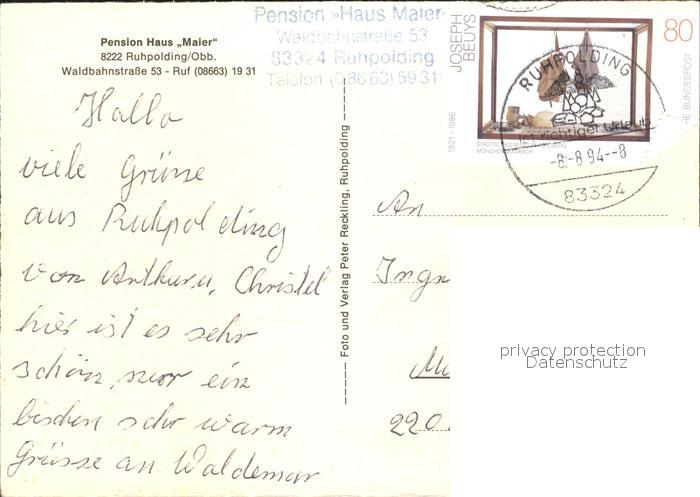 Pension Haus „Maier"
8222 Ruhpolding/Obb.
Waldbahnstraße 53 - Ruf (08663) 19 31
Pension »Haus Maier
Waldbahnstraße 53
83324 Ruhpolding
Telefon (08663) 5931
JOSEPH
BEUYS
1921-1986
80
HE BUNDESPOST
STÄDTISCHES MUSEUM ABTEIBERG
MÖNCHENGLADBACH
RUHPOLDING
richtiger Urlaub
-8.-8.94.--8
83324
Hallo
viele Grüsse
aus Ruhpolding
von Arthur u. Christel
hier ist es sehr
schön, nur ein
bischen sehr warm
Grüsse an Waldemar
Foto und Verlag Peter Reckling, Ruhpolding
An
Ingr
220
privacy protection
Datenschutz